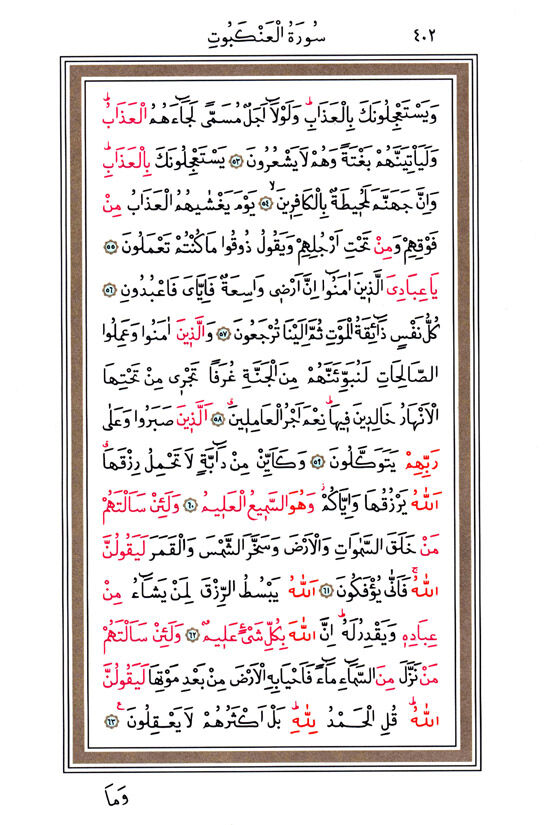 ٤٠٢ سُورَةُ الْعَنْكَبُوتِ
وَيَسْتَعْجِلُونَكَ بِالْعَذَابِۜ وَلَوْلَٓا اَجَلٌ مُسَمًّى لَجَٓاءَهُمُ الْعَذَابُۜ
وَلَيَأْتِيَنَّهُمْ بَغْتَةً وَهُمْ لَا يَشْعُرُونَ ﴿٥٣﴾ يَسْتَعْجِلُونَكَ بِالْعَذَابِۜ
وَاِنَّ جَهَنَّمَ لَمُح۪يطَةٌ بِالْكَافِر۪ينَۙ ﴿٥٤﴾ يَوْمَ يَغْشٰيهُمُ الْعَذَابُ مِنْ
فَوْقِهِمْ وَمِنْ تَحْتِ اَرْجُلِهِمْ وَيَقُولُ ذُوقُوا مَا كُنْتُمْ تَعْمَلُونَ ﴿٥٥﴾
يَا عِبَادِيَ الَّذ۪ينَ اٰمَنُٓوا اِنَّ اَرْض۪ي وَاسِعَةٌ فَاِيَّايَ فَاعْبُدُونِ ﴿٥٦﴾
كُلُّ نَفْسٍ ذَٓائِقَةُ الْمَوْتِ ثُمَّ اِلَيْنَا تُرْجَعُونَ ﴿٥٧﴾ وَالَّذ۪ينَ اٰمَنُوا وَعَمِلُوا
الصَّالِحَاتِ لَنُبَوِّئَنَّهُمْ مِنَ الْجَنَّةِ غُرَفًا تَجْر۪ي مِنْ تَحْتِهَا
الْاَنْهَارُ خَالِد۪ينَ ف۪يهَاۜ نِعْمَ اَجْرُ الْعَامِل۪ينَۗ ﴿٥٨﴾ اَلَّذ۪ينَ صَبَرُوا وَعَلٰى
رَبِّهِمْ يَتَوَكَّلُونَ ﴿٥٩﴾ وَكَاَيِّنْ مِنْ دَٓابَّةٍ لَا تَحْمِلُ رِزْقَهَاۗ
اَللّٰهُ يَرْزُقُهَا وَاِيَّاكُمْۘ وَهُوَ السَّم۪يعُ الْعَل۪يمُ ﴿٦٠﴾ وَلَئِنْ سَاَلْتَهُمْ
مَنْ خَلَقَ السَّمٰوَاتِ وَالْاَرْضَ وَسَخَّرَ الشَّمْسَ وَالْقَمَرَ لَيَقُولُنَّ
اللّٰهُۚ فَاَنّٰى يُؤْفَكُونَ ﴿٦١﴾ اَللّٰهُ يَبْسُطُ الرِّزْقَ لِمَنْ يَشَٓاءُ مِنْ
عِبَادِه۪ وَيَقْدِرُ لَهُۜ اِنَّ اللّٰهَ بِكُلِّ شَيْءٍ عَل۪يمٌ ﴿٦٢﴾ وَلَئِنْ سَاَلْتَهُمْ
مَنْ نَزَّلَ مِنَ السَّمَٓاءِ مَٓاءً فَاَحْيَا بِهِ الْاَرْضَ مِنْ بَعْدِ مَوْتِهَا لَيَقُولُنَّ
اللّٰهُۜ قُلِ الْحَمْدُ لِلّٰهِۜ بَلْ اَكْثَرُهُمْ لَا يَعْقِلُونَ۟ ﴿٦٣﴾
وَمَا